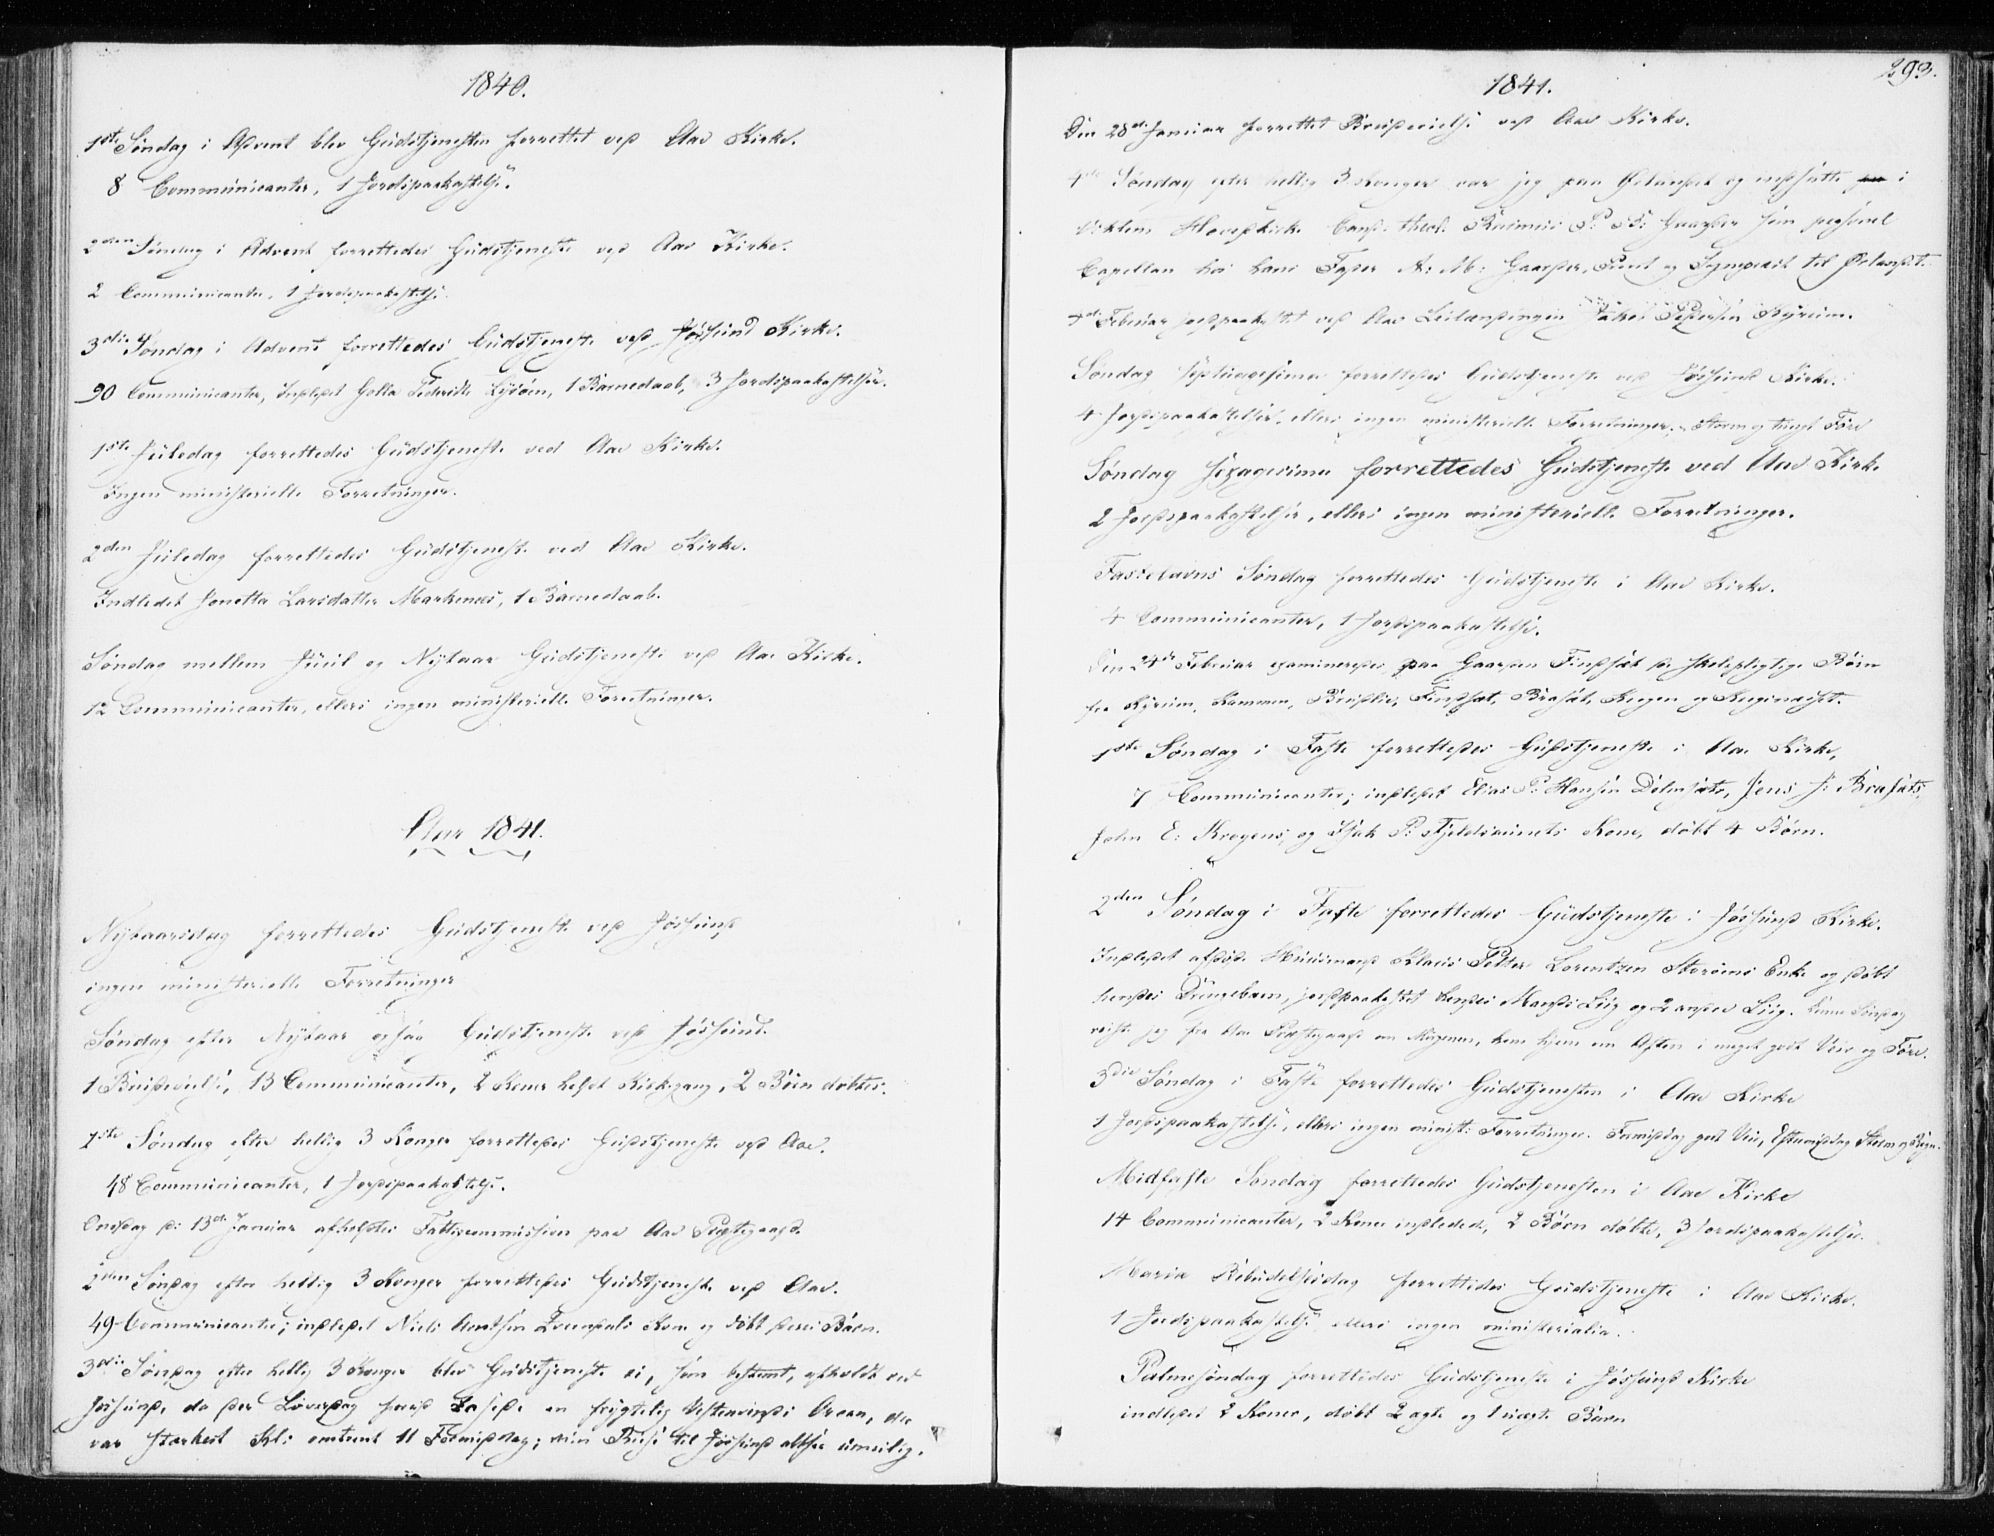 1840.
1ste Søndag i Advent blev Gudstjenesten forrettet ved Aae Kirke.
8 Communicanter, 1 Jordspaakastelse.
2den Søndag i Advent forrettedes Gudstjeneste ved Aae Kirke.
2 Communicanter, 1 Jordspaakastelse.
3die Søndag i Advent forrettedes Gudstjeneste ved Jøssund Kirke.
90 Communicanter, Indledet Golla Lysøen, 1 Barnedaab, 3 Jordspaakastelser.
1ste Juledag forrettedes Gudstjeneste ved Aae Kirke.
Ingen ministerielle Forretninger.
2den Juledag forrettedes Gudstjeneste ved Aae Kirke.
Indledet Jonetta Larsdatter Markenæs, 1 Barnedaab.
Søndag mellem Juul og Nytaar Gudstjeneste ved Aae Kirke.
12 Communicanter, ellers ingen ministerielle Forretninger.
Aar 1841.
Nytaarsdag forrettedes Gudstjeneste ved Jøssund
ingen ministerielle Forretninger
Søndag efter Nytaar ogsaa Gudstjeneste ved Jøssund.
1 Brudevielse, 13 Communicanter, 2 Koner holdt Kirkegang, 2 Børn døbtes.
1ste Søndag efter hellig 3 Konger forrettedes Gudstjeneste ved Aae.
48 Communicanter, 1 Jordspaakastelse.
Onsdag d: 13de Januar afholdtes Fattigcommission paa Aae Præstegaard.
2den Søndag efter hellig 3 Konger forrettedes Gudstjeneste ved Aae.
49 Communicanter; indledet Niels Arntsen Kone og døbt deres Barn.
3die Søndag efter hellig 3 Konger blev Gudstjeneste ei, som bestemt, afholdt ved
Jøssund, da der Løverdag forud rasede en frygtelig Vestenvinds Orcan, der
var stærkest Kl: omtrent 11 Formiddag; min Reise til Jøssund altsaa umulig.
293.
1841.
Den 28de Januar forrettet Brudevielse ved Aae Kirke.
4de Søndag efter hellig 3 Konger var jeg paa Ørlandet og indsatte i
Viklems Hovedkirke Cand: theol: Rasmus P: B: Gaarder som personel
Capellan hos hans Fader A: M: Gaarder, Provst og Sognepræst til Ørlandet.
Februar jordpaakastet ved Aae Pedersen Hyrium.
Søndag Septuagesima forrettedes Gudstjeneste ved Jøssund Kirke.
4 Jordspaakastelser, ellers ingen ministerielle Forretninger. Storm og tungt Føre
Søndag Sexagesima forrettedes Gudstjeneste ved Aae Kirke
2 Jordspaakastelser, ellers ingen ministerielle Forretninger.
Fastelavns Søndag forrettedes Gudstjeneste i Aae Kirke.
4 Communicanter, 1 Jordspaakastelse.
Den 24de Februar examineredes paa Gaarden Findsæt de skolepligtige Børn
fra Hyrium, Kammen, Findsæt, Brasæt, Krogen og
1ste Søndag i Faste forrettedes Gudstjeneste i Aae Kirke,
7 Communicanter; indledet Elias P: Hansen Dolmsæts, Jens J: Brasæts,
John E: Krogens, og Isak P: Fjeldsaunets Kone, døbt 4 Børn.
2den Søndag i Faste forrettedes Gudstjeneste i Jøssund Kirke.
Indledet afdøde Huusmand Klaus Petter Lorentzen Storøens Enke og døbt
hendes Drengebarn, jordpaakastet hendes Mands Liig og 2 andre Liig. Denne Søndag
reiste jeg fra Aae Præstegaard om Morgenen, kom hjem om Aften i meget godt Veir og Føre.
3die Søndag i Faste forrettedes Gudstjenesten i Aae Kirke
1 Jordspaakastelse, ellers ingen minist: Forretninger. Formiddag godt Veir, Eftermiddag Storm og Regn.
Midfaste Søndag forrettedes Gudstjenesten i Aae Kirke
14 Communicanter, 2 Koner indledede, 2 Børn døbte, 3 Jordspaakastelser.
Mariæ Bebudelsesdag forrettedes Gudstjeneste i Aae Kirke.
1 Jordspaakastelse, ellers ingen ministerialia.
Palmesøndag forrettedes Gudstjeneste i Jøssund Kirke
indledet 2 Koner, døbt 2 ægte og 1 uægte Barn